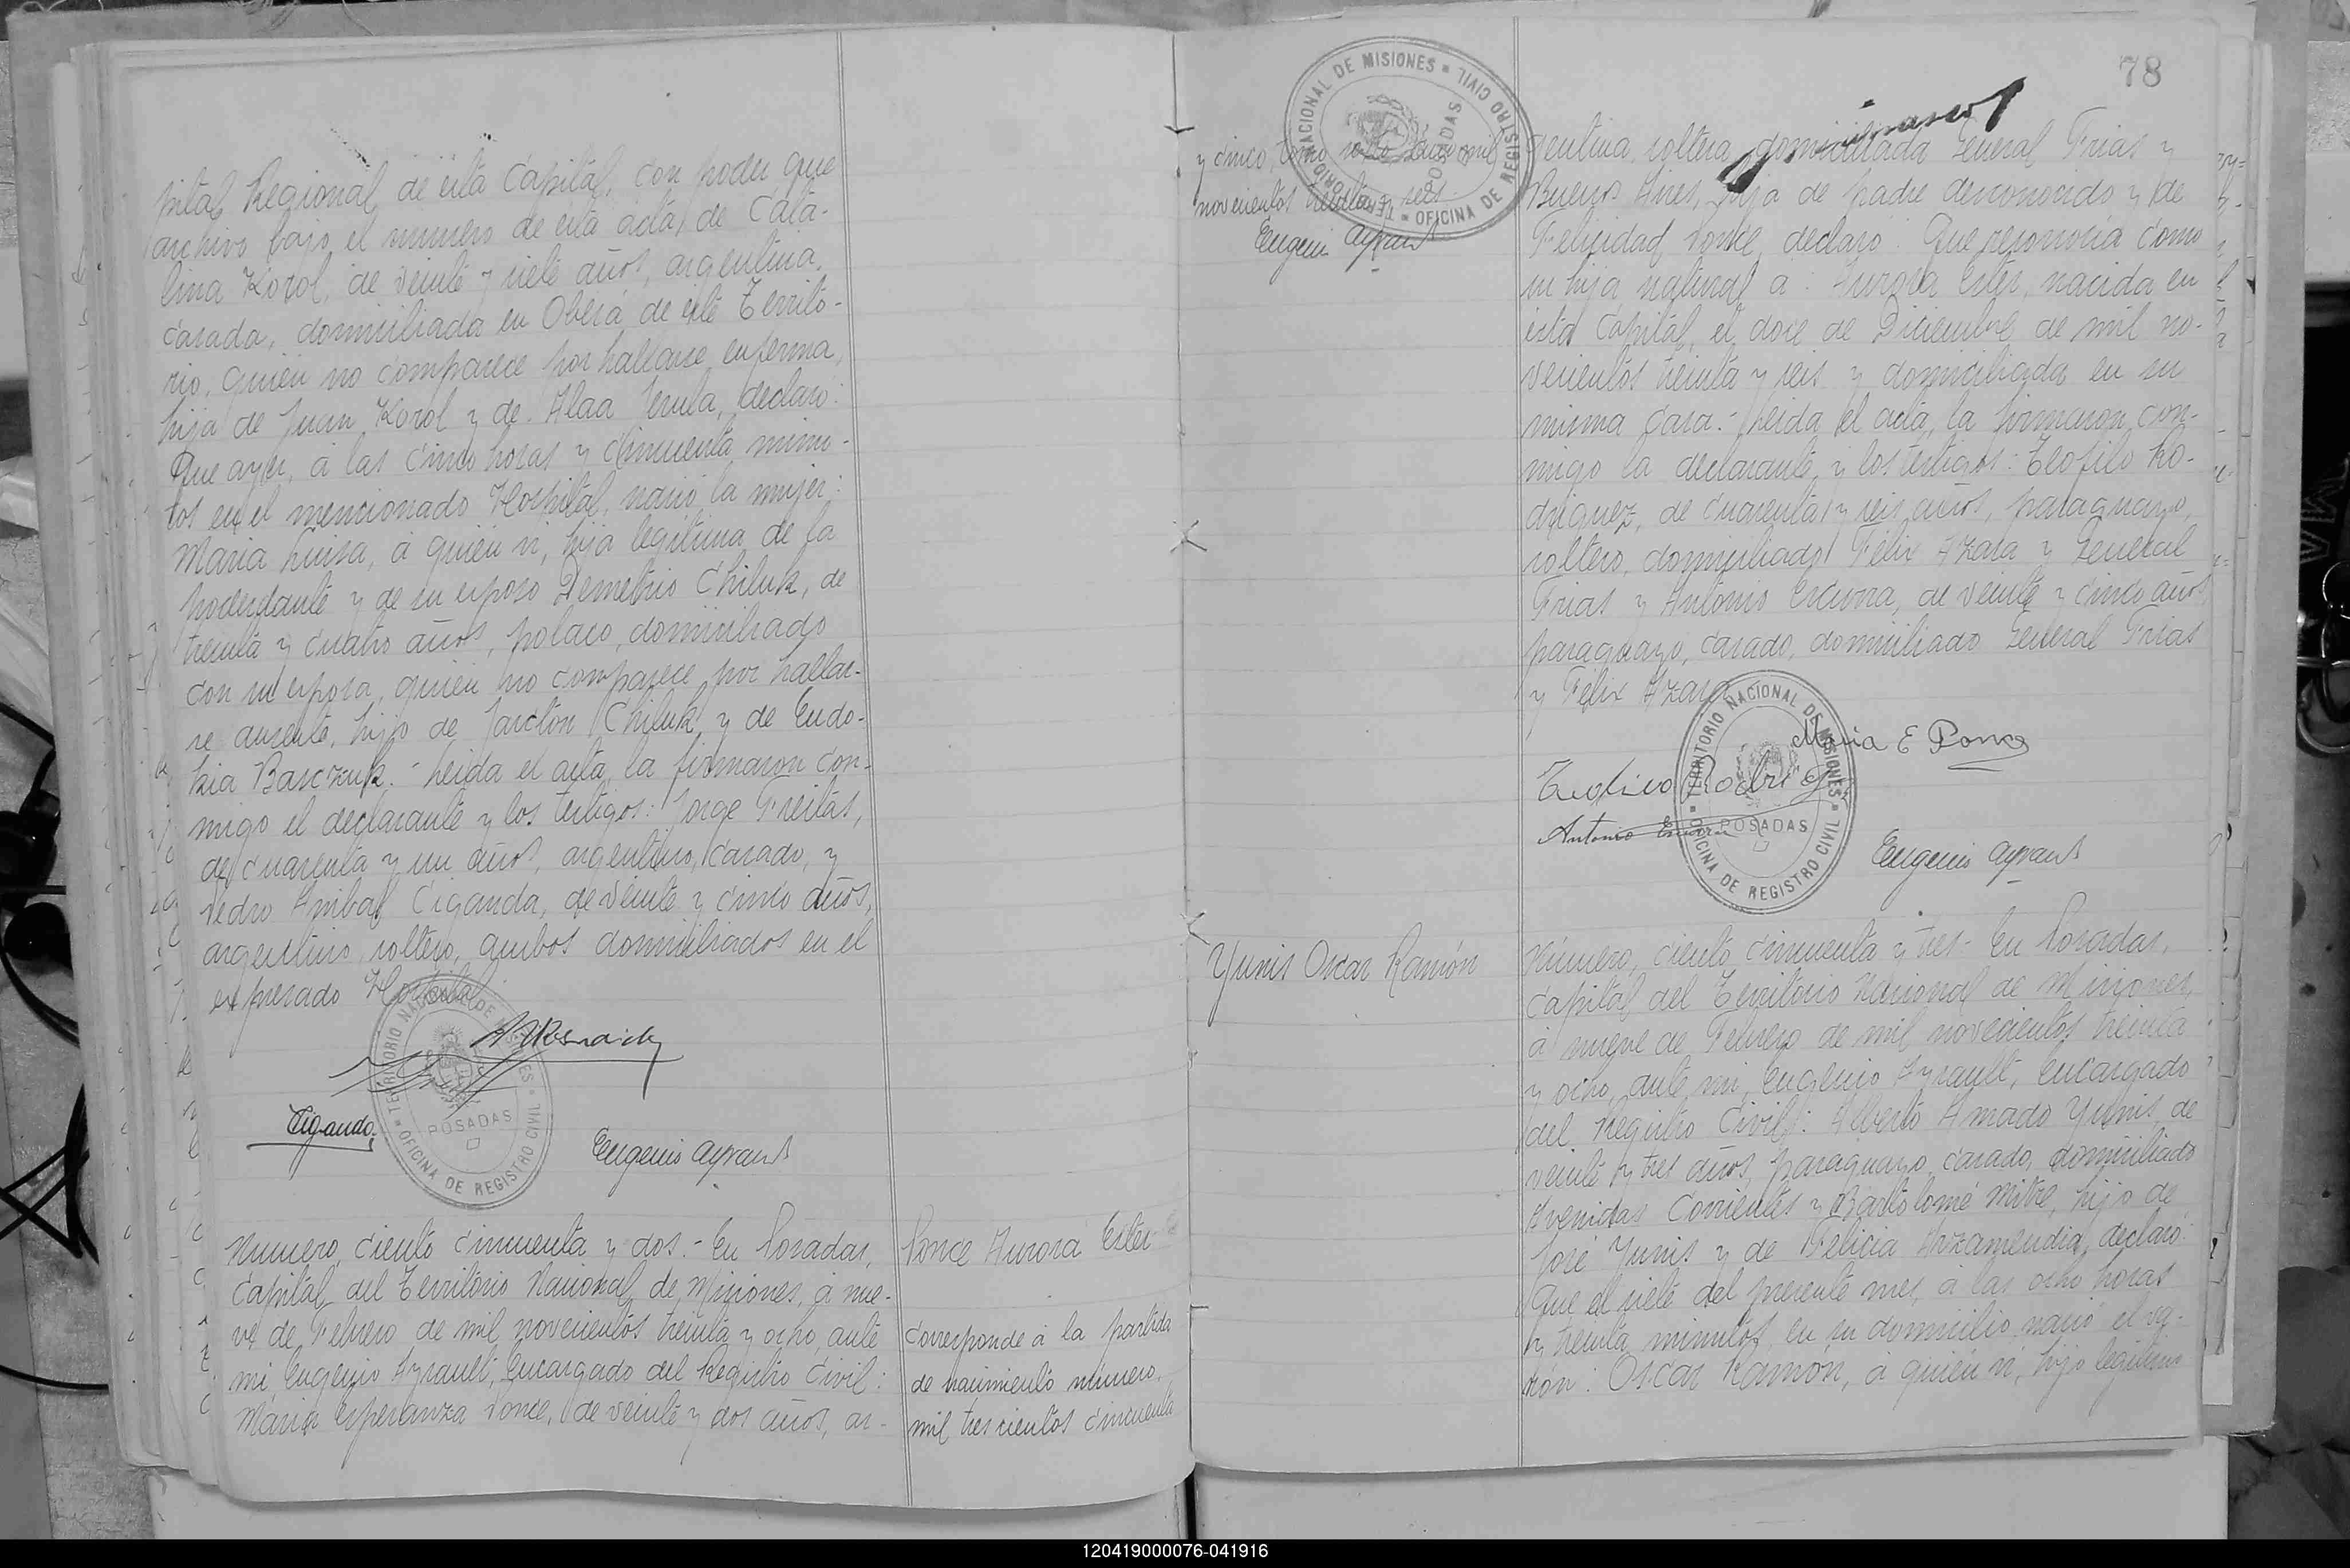 pital Regional de esta Capital, con poder que
archivo bajo el numero de esta acta, de Cata-
lina Korol, de veinte y siete años, argentina,
casada, domiciliada en Oberá de este Territo-
rio, quien no comparece por hallarse enferma,
hija de Juan Korol y de declaro:
Que ayer, á las cinco horas y cincuenta minu-
tos en el mencionado Hospital, nació la mujer:
Maria Luisa, á quien vi, hija legitima de la
poderdante y de su esposo Demetrio Chiluk, de
treinta y cuatro años, polaco, domiciliado
con su esposa, quien no comparece por hallar-
se ausente, hijo de Chiluk y de Eudo-
kia Basczuk.- Leida el acta, la firmaron con-
migo el declarante y los testigos: Jorge Freitas,
de cuarenta y un años, argentino, casado, y
Pedro Anibal Ciganda, de veinte y cinco años,
argentino, soltero, ambos domiciliados en el
expresado Hospital
TERRITORIO NACIONAL DE MISIONES
POSADAS
OFICINA DE REGISTRO CIVIL
Ciganda
Eugenio Ayrault
Numero, ciento cincuenta y dos.- En Posadas,
Capital del Territorio Nacional de Misiones, á nue-
ve de Febrero de mil novecientos treinta y ocho, ante
mi, Eugenio Ayrault, Encargado del Registro Civil:
Maria Esperanza Ponce, de veinte y dos años, ar-
Ponce Aurora Ester
Corresponde á la partida
de nacimiento número,
mil trescientos cincuenta
y cinco, tomo
novecientos treinta y seis
Eugenio Ayrault
TERRITORIO NACIONAL DE MISIONES
POSADAS
OFICINA DE REGISTRO CIVIL
78
gentina, soltera, domiciliada General Frias y
Buenos Aires, hija de padre desconocido y de
Felicidad Ponce, declaro: Que reconocia como
su hija natural á: Aurora Ester, nacida en
esta Capital, el doce de Diciembre de mil no-
vecientos treinta y seis y domiciliada en su
misma casa.- Leida el acta, la firmaron con-
migo la declarante y los testigos: Teofilo Ro-
driguez, de cuarenta y seis años, paraguayo,
soltero, domiciliado Félix Azara y General
Frias y Antonio de veinte y cinco años,
paraguayo, casado, domiciliado General Frias
y Félix Azara
TERRITORIO NACIONAL DE MISIONES
POSADAS
OFICINA DE REGISTRO CIVIL
Maria E Ponce
Antonio
Eugenio Ayrault
Yunis Oscar Ramón
Número, ciento cincuenta y tres- En Posadas,
Capital del Territorio Nacional de Misiones,
á nueve de Febrero de mil novecientos treinta
y ocho, ante mi, Eugenio Ayrault, Encargado
del Registro Civil: Alberto Amado Yunis, de
veinte y tres años, paraguayo, casado, domiciliado
Avenidas Corrientes y Bartolomé Mitre, hijo de
José Yunis y de Felicia Arzamendia, declaró:
Que el siete del presente mes, á las ocho horas
y treinta minutos, en su domicilio, nació el va-
rón: Oscar Ramón, á quien vi, hijo legitimo
120419000076-041916